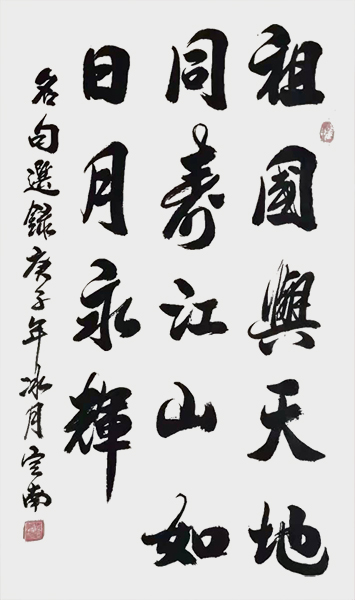 祖國與天地
同壽江山如
日月永輝
名句選録庚子年冰月定南